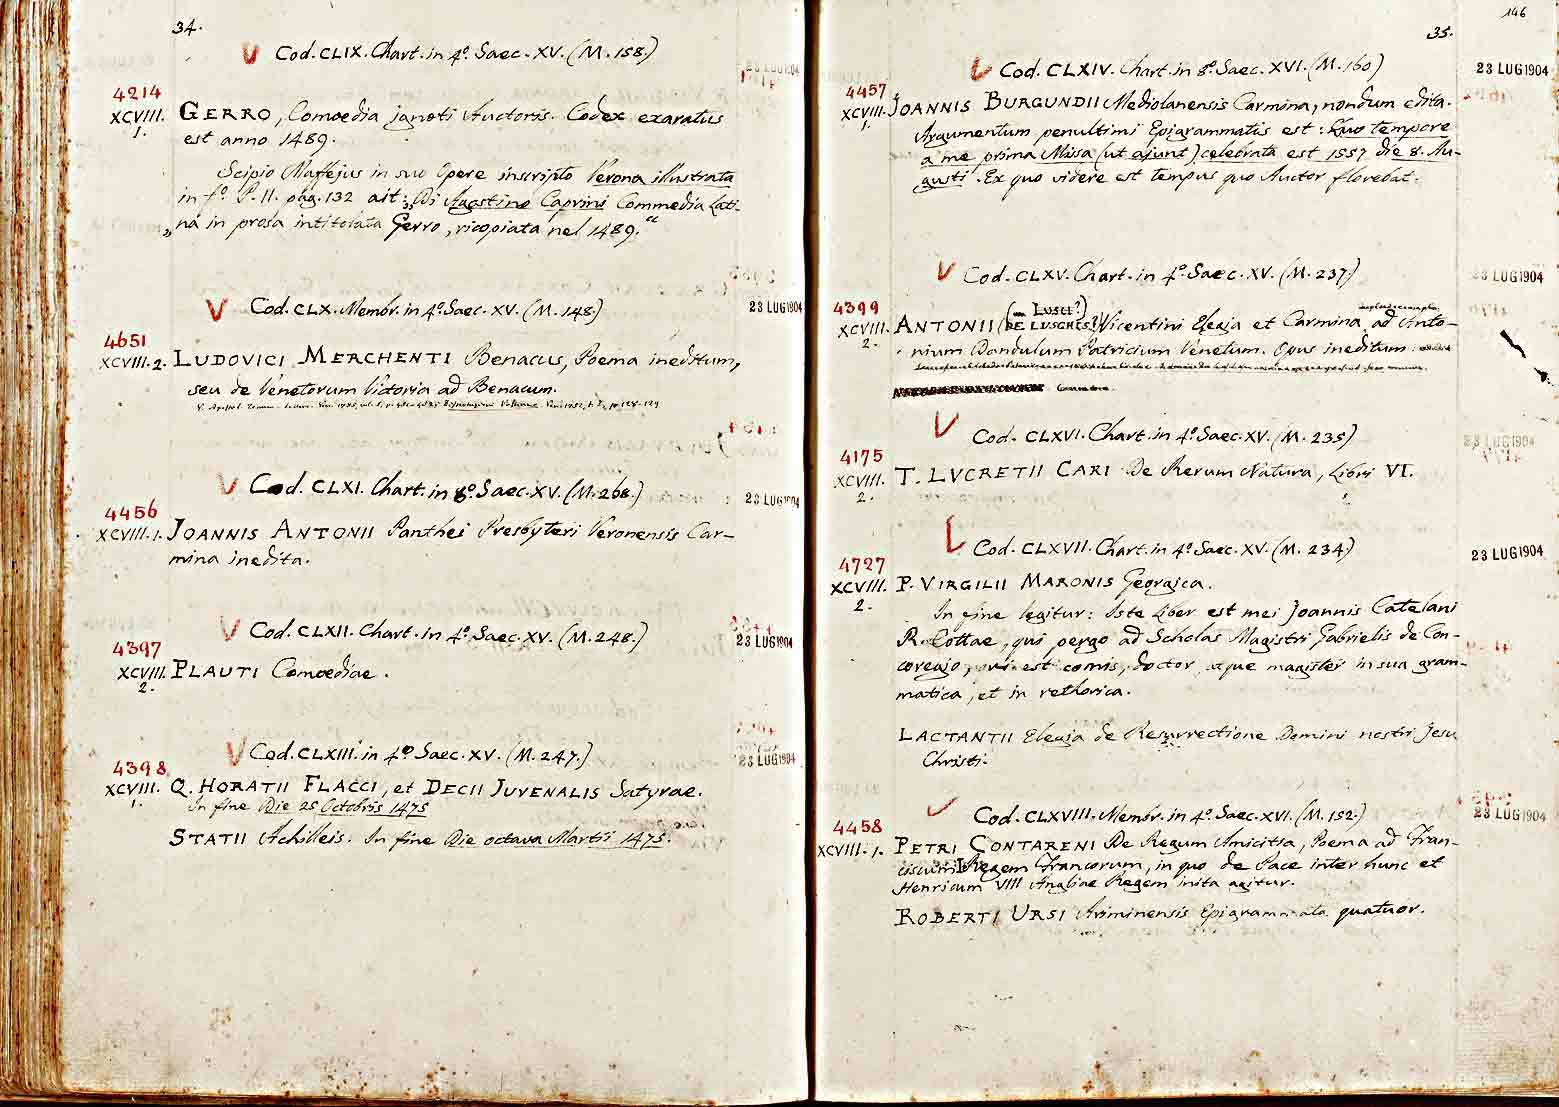 34.
Cod. CLIX. Chart. in 4º. Saec. XV. (M. 158.)
23 LUG 1904
4214
XCVIII. GERRO, Comoedia ignoti Auctoris. Codex exaratus
1.
est anno 1489.
Scipio Maffejus in suo Opere inscripto Verona illustrata
in fº. P. II. pag. 132 ait: „Di Agostino Caprini Commedia Lati-
„na in prosa intitolata Gerro, ricopiata nel 1489.“
Cod. CLX. Membr. in 4º. Saec. XV. (M. 148.)
23 LUG 1904
4651
XCVIII. 2. LUDOVICI MERCHENTI Benacus, Poema ineditum,
seu de Venetorum Victoria ad Benacum.
Cod. CLXI. Chart. in 8º. Saec. XV. (M. 268.)
23 LUG 1904
4456
XCVIII. 1. JOANNIS ANTONII Panthei Presbyteri Veronensis Car-
mina inedita.
Cod. CLXII. Chart. in 4º. Saec. XV. (M. 248.)
23 LUG 1904
4397
XCVIII. PLAUTI Comoediae.
2.
Cod. CLXIII. in 4º Saec. XV. (M. 247.)
23 LUG 1904
4398
XCVIII. Q. HORATII FLACCI, et DECII JUVENALIS Satyrae.
1.
In fine Die 25 Octobris 1475
STATII Achilleis. In fine Die octava Martii 1475.
146
35.
Cod. CLXIV. Chart. in 8º. Saec. XVI. (M. 160)
23 LUG 1904
4457
XCVIII. JOANNIS BURGUNDII Mediolanensis Carmina, nondum edita.
1.
Argumentum penultimi Epigrammatis est: Quo tempore
a me prima Missa (ut ajunt) celebrata est 1557 die 8. Au-
gusti. Ex quo videre est tempus quo Auctor florebat.
Cod. CLXV. Chart. in 4º. Saec. XV. (M. 237.)
23 LUG 1904
4399
XCVIII. ANTONII (DE LUSCHES?) Vicentini Elegia et Carmina ad Anto-
2.
nium Dandulum Patricium Venetum. Opus ineditum
Cod. CLXVI. Chart. in 4º. Saec. XV. (M. 235)
23 LUG 1904
4175
XCVIII. T. LVCRETII CARI De Rerum Natura, Libri VI.
2.
Cod. CLXVII. Chart. in 4º. Saec. XV. (M. 234)
23 LUG 1904
4727
XCVIII. P. VIRGILII MARONIS Georgica.
2.
In fine legitur: Iste Liber est mei Joannis Catelani
R. Cottae, qui pergo ad Scholas Magistri Gabrielis de Con-
coregio, qui est comis, doctor, atque magister in sua gram-
matica, et in rethorica.
LACTANTII Elegia de Resurrectione Domini nostri Jesu
Christi.
Cod. CLXVIII. Membr. in 4º. Saec. XVI. (M. 152.)
23 LUG 1904
4458
XCVIII. 1. PETRI CONTARENI De Regum Amicitia, Poema ad Fran-
ciscum I Regem Francorum, in quo de Pace inter hunc et
Henricum VIII Angliae Regem inita agitur.
ROBERTI URSI Ariminensis Epigrammata quatuor.